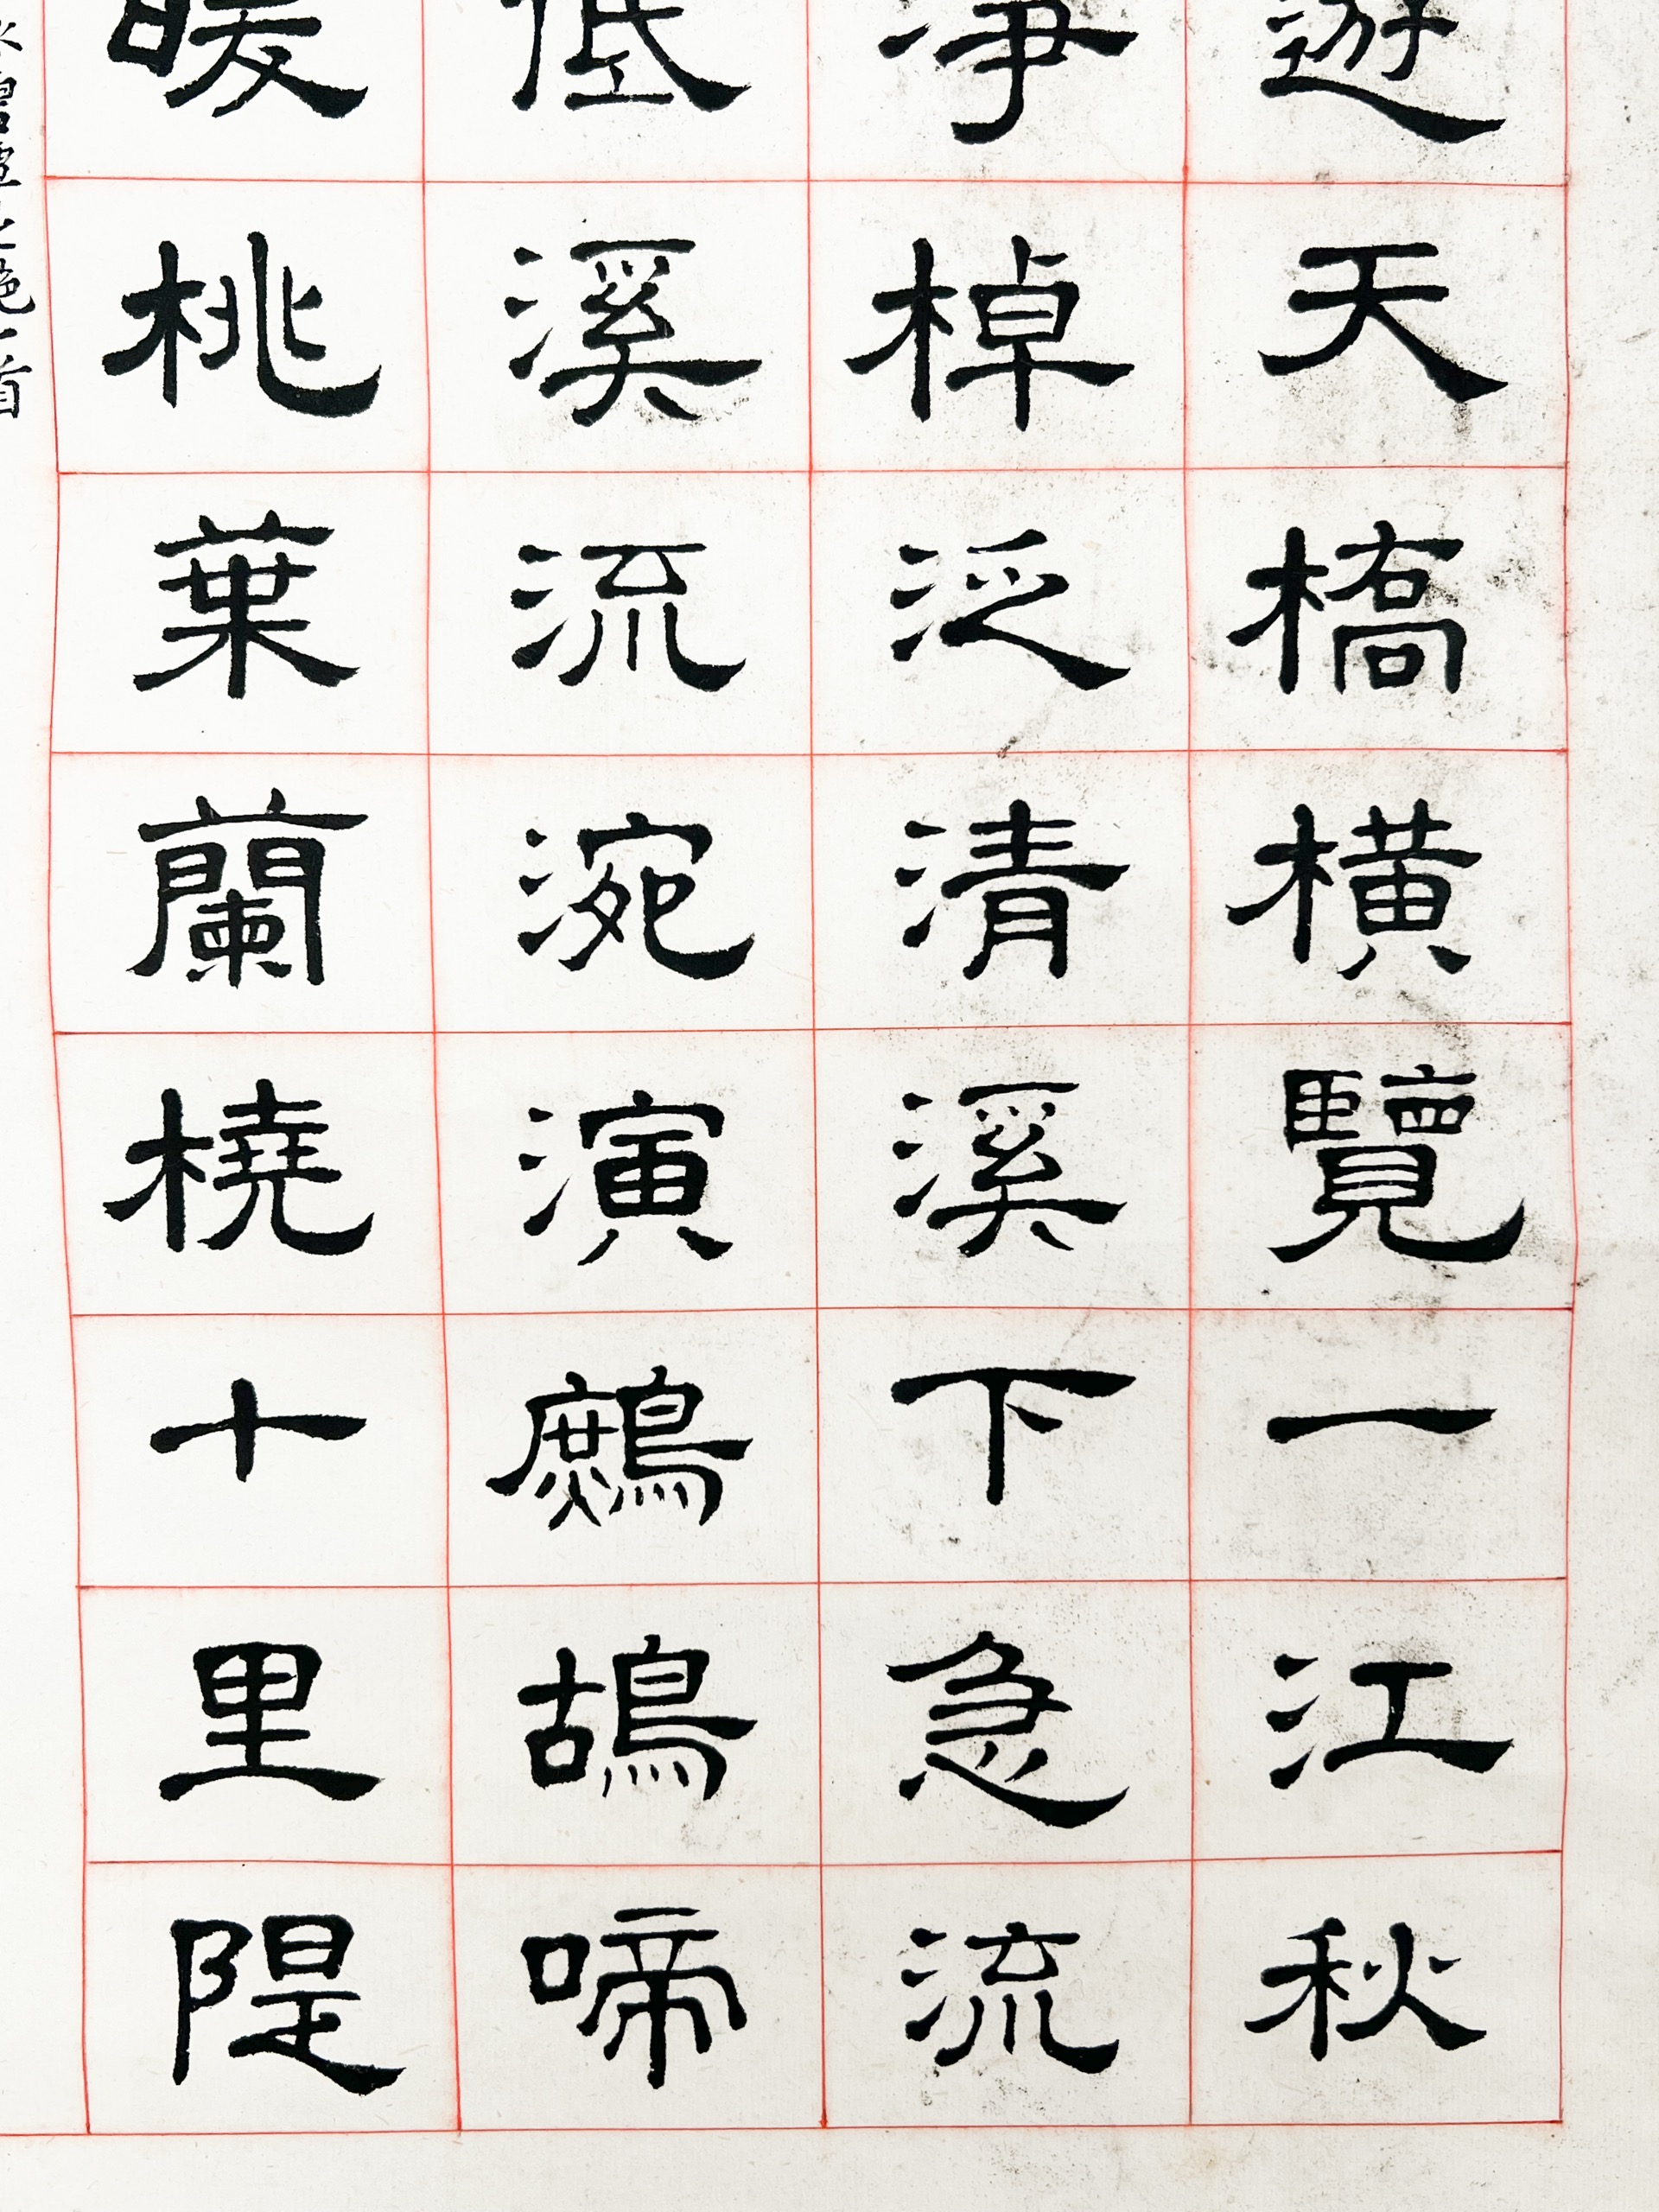 遊天橋橫覽一江秋
爭棹泛清溪下急流
低溪流涴演鷓鴣啼
暖桃葉蘭橈十里隄
首